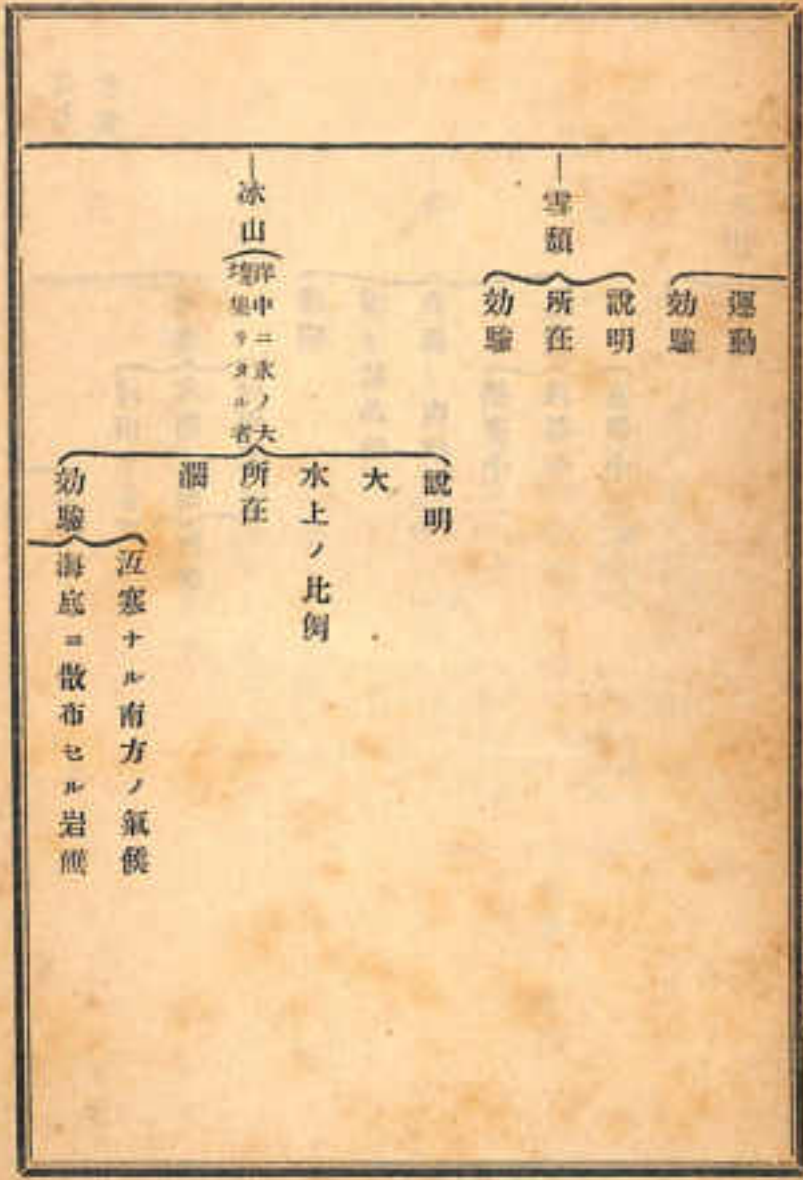 運動
効驗
雪頽
說明
所在
効驗
冰山
洋中ニ氷ノ大
塊集リタル者
說明
大
水上ノ比例
所在
効驗
冱寒ナル南方ノ氣候
海底ニ散布セル岩